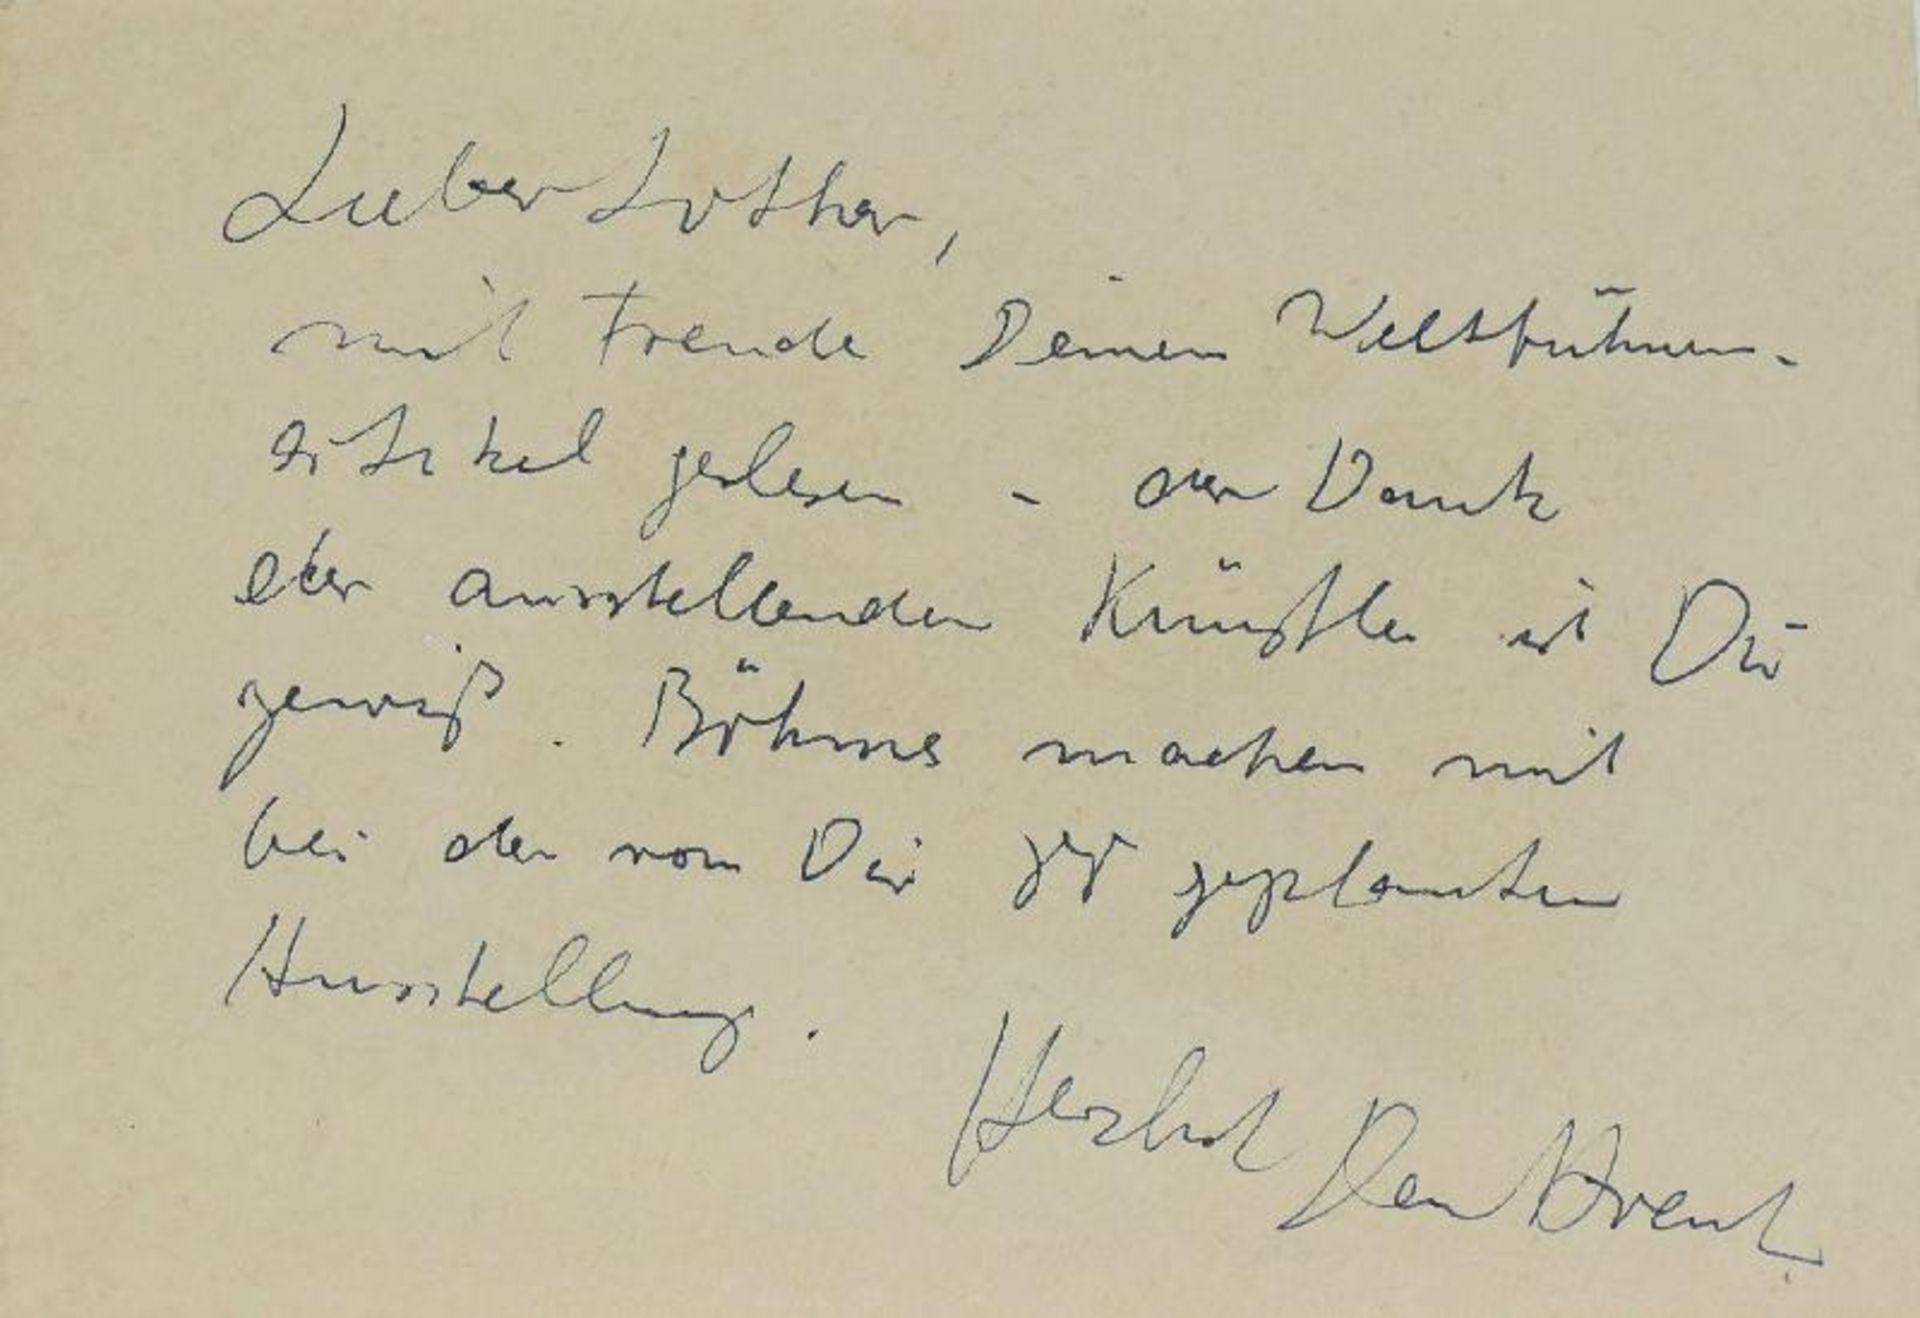 Lieber Lothar,
mit Freude Deinen Weltbühnen-
artikel gelesen - der Dank
der ausstellenden Künstler ist Dir
gewiß. Böhms machen mit
bei der von Dir geplanten
Ausstellung.
Herzlich Dein